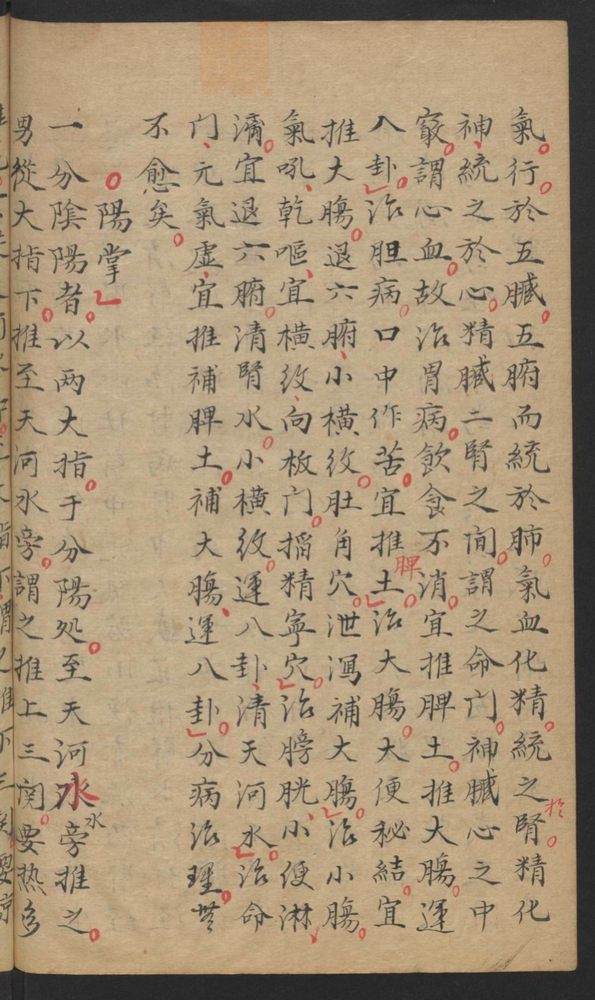 氣。行於五臟。五腑而統於肺。氣血化精。統之於腎。精化
神、統之於心。精臟二腎之间。謂之命门。神臟心之中
竅。謂心血。故治胃病。飲食不消。宜推脾土。推大腸。運
八卦。治胆病。口中作苦。宜推脾土。治大腸。大便秘結。宜
推大腸。退六腑、小橫纹。肚角穴。泄瀉補大腸。治小腸。
氣吼、乾嘔、宜橫纹、向板门。掐精寧穴。治膀胱、小便淋、
濇。宜退六腑。清腎水。小橫纹。運八卦、清天河水。治命
门、元氣虛、宜推補脾土。補大腸、運八卦。分病治理。無
不愈矣。
。陽掌
一分陰陽者。以两大指。于分陽处。至天河水旁推之。
男從大指下。推至天河水旁。謂之推上三関。要热多